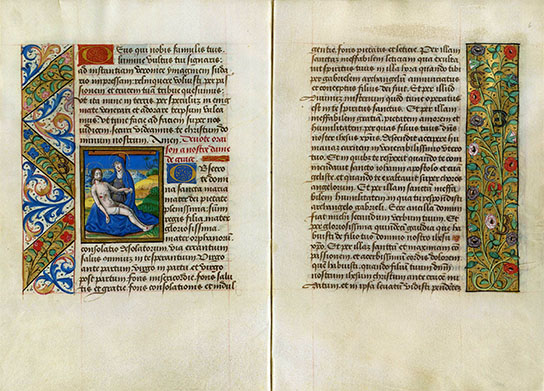 Deus qui nobis famulis tuis
lumine vultus tui signatis
ad instantiam veronice ymaginem suda
rio impressam relinquere voluisti per pas
sionem et crucem tuam tribue quesumus
ut ita nunc in terris per speculum in enig
mate venerari et adorare te ipsum valea
mus ut tunc facie ad faciem super nos
iudicem securi videamus te christum do
minum nostrum. Amen. Devote orai
son a nostre dame
de grace
Obsecro
te domi
na sancta maria
mater dei pietate
plenissima summi
regis filia mater
gloriosissima
mater orphanorum
consolatio desolatorum via errantium
salus omnium in te sperantium Virgo
ante partum Virgo in partu et Virgo
post partum fons misericordie fons salu
tis et gratie fons consolationis et indul
gentie fons pietatis et leticie Per illam
sanctam ineffabilem leticiam qua exulta
vit spiritus tuus in illa hora quando tibi
per gabrielem archangelum annunciatus
et conceptus filius dei fuit Et per illud
divinum misterium quod tunc operatus
est in te spiritus sanctus Et per illam
ineffabilem gratiam pietatem amorem et
humilitatem per quas filius tuus
descendit accipere hu
manam carnem in venerabilissimo vtero
tuo Et in quibus te respexit quando te com
mendavit sancto iohanni apostolo et euan
geliste et quando te exaltavit super choros
angelorum Et per illam sanctam ineffa
bilem humilitatem in qua tu respondisti
archangelo gabrieli Ecce ancilla domini
fiat michi secundum verbum tuum Et
per illa gloriosissima quindecim gaudia que ha
buisti de filio tuo domino nostro ihesu
Et per illam sanctam et maximam com
passionem et acerbissimum cordis dolorem
que habuisti quando filium tuum dominum
nostrum ihesum christum ante crucem nu
datum et in ipsa levatum vidisti pendentem